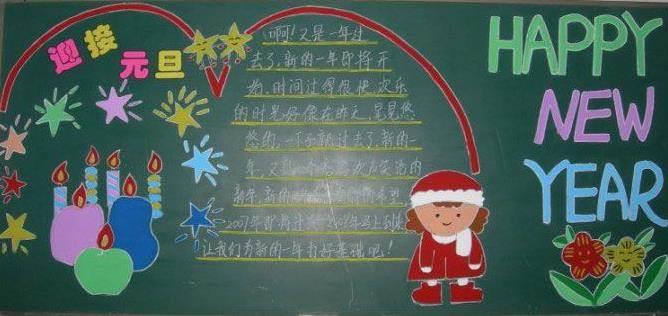 迎接
元旦
啊!又是一年过
去了,新的一年即将开
始,时间过得很快,欢乐
的时光好像在昨天,晃晃悠
悠的,一下子就过去了,新的一
年,又
新年,新的
2007年即将过 2008年马上到来
让我们为新的一年打好基础吧!
HAPPY
NEW
YEAR